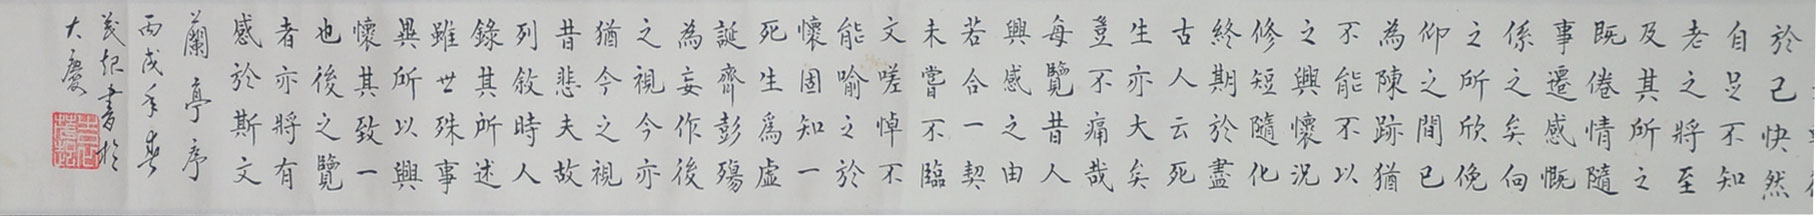 於己快然
自足不知
老之將至
及其所之
既倦情隨
事遷感慨
係之矣向
之所欣俛
仰之間已
為陳跡猶
不能不以
之興懷況
修短隨化
終期於盡
古人云死
生亦大矣
豈不痛哉
每覽昔人
興感之由
若合一契
未嘗不臨
文嗟悼不
能喻之於
懷固知一
死生爲虛
誕齊彭殤
為妄作後
之視今亦
猶今之視
昔悲夫故
列敘時人
錄其所述
雖世殊事
異所以興
懷其致一
也後之覽
者亦將有
感於斯文
蘭亭序
丙戌年春
書於
大慶